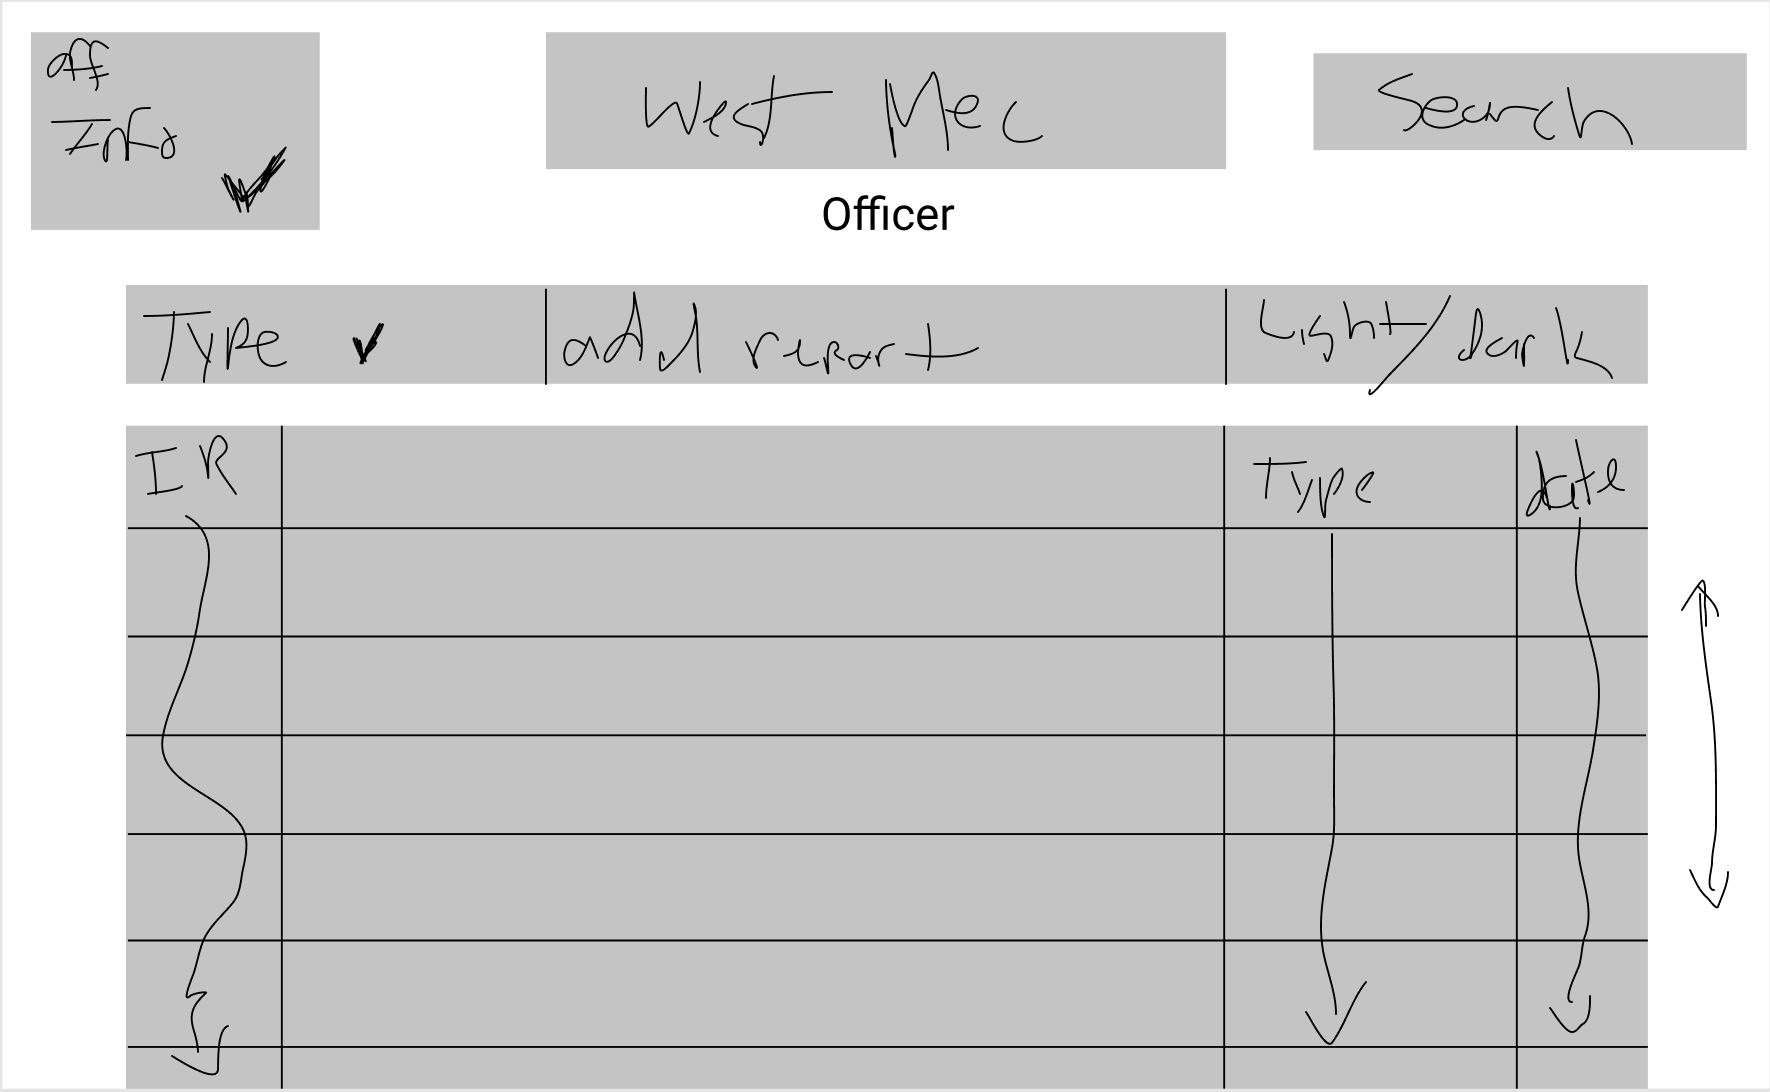 off
Info
West Mec
Search
Officer
Type
add report
Light/dark
IR
Type
date